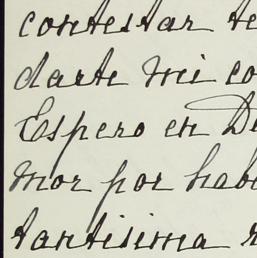 contestar te
darte mi co
Espero en D
mor por hab
tantisima